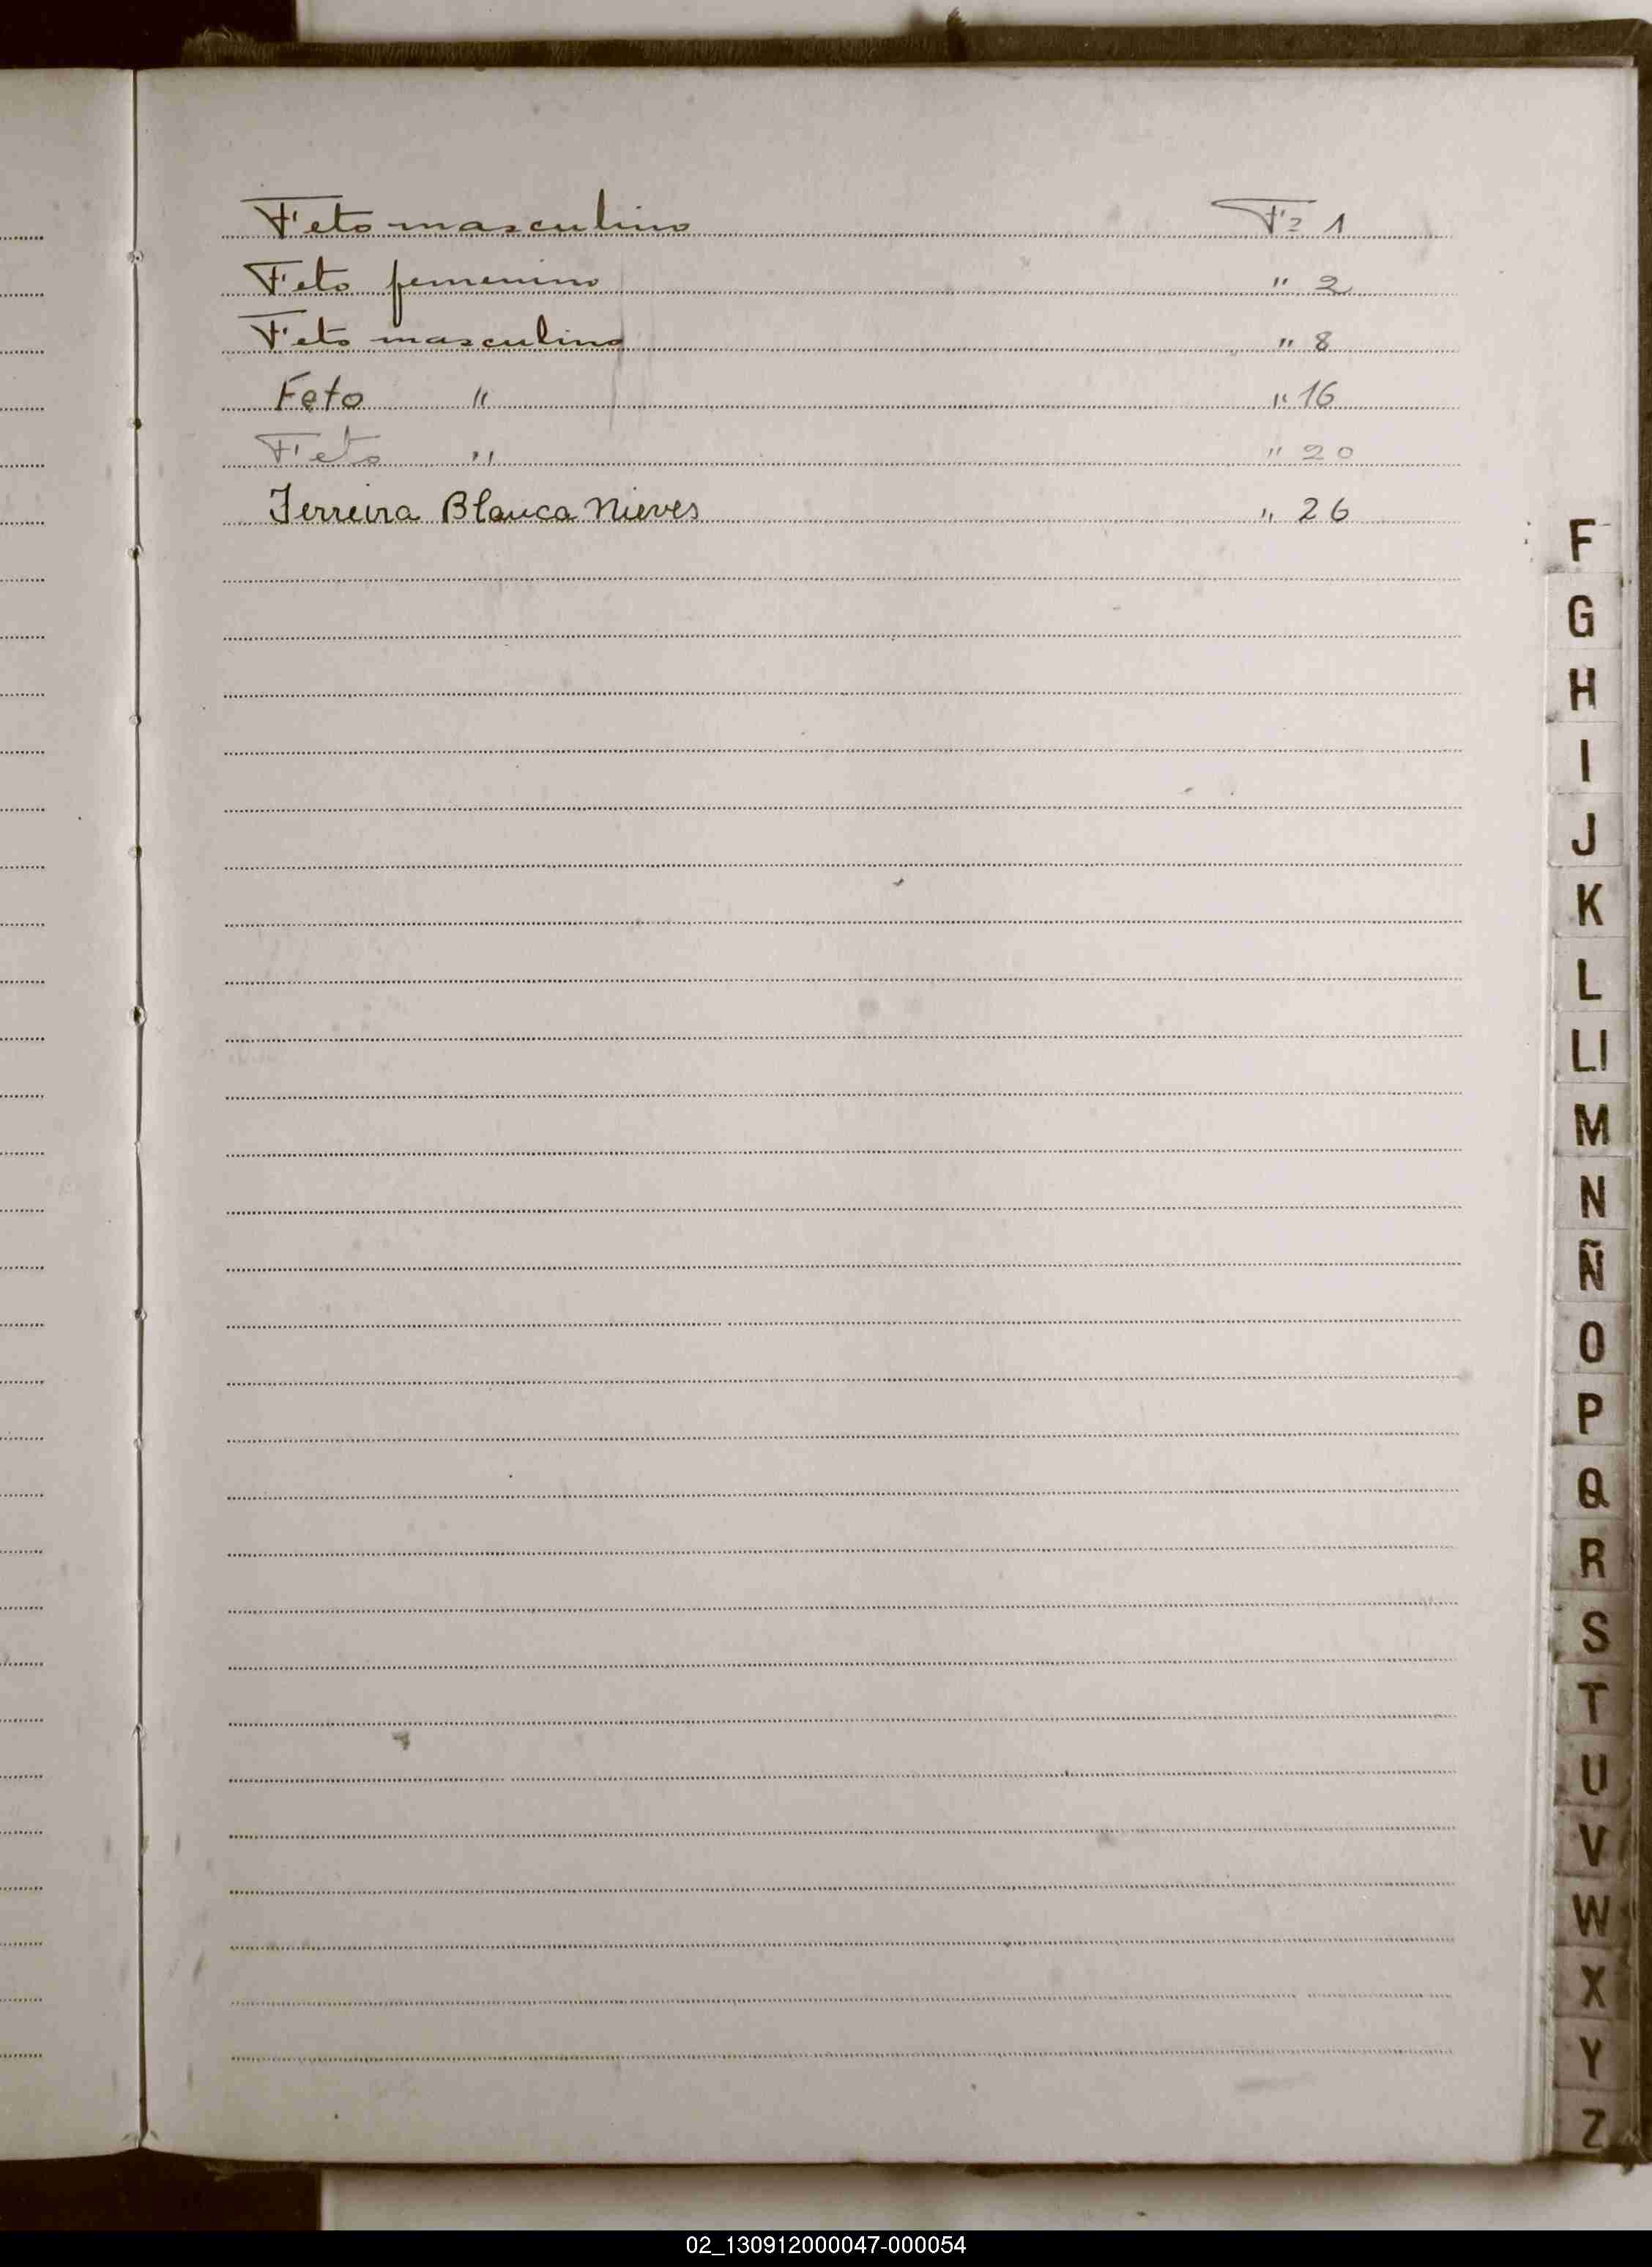 Feto masculino Fº 1
Feto femenino " 2
Feto masculino " 8
Feto " " 16
Feto " " 20
Ferreira Blanca Nieves " 26
F
G
H
I
J
K
L
Ll
M
N
Ñ
O
P
Q
R
S
T
U
V
W
X
Y
Z
02_130912000047-000054